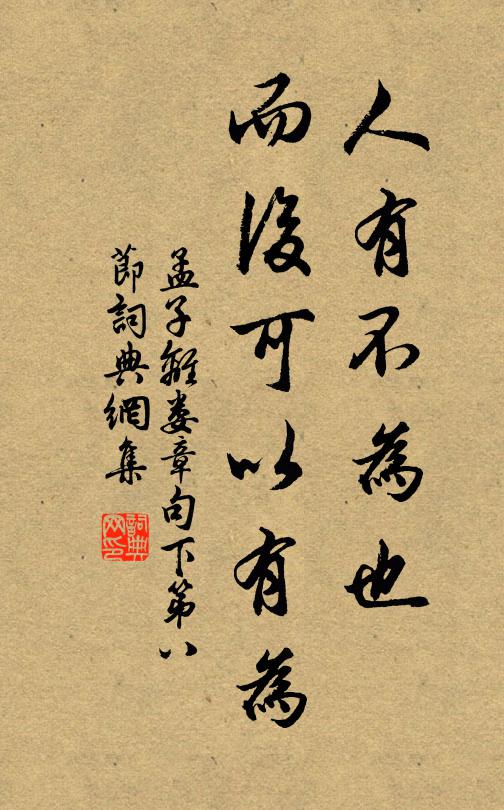 人有不為也
而後可以有為
孟子離婁章句下第八
節詞典網集
詞典
网印